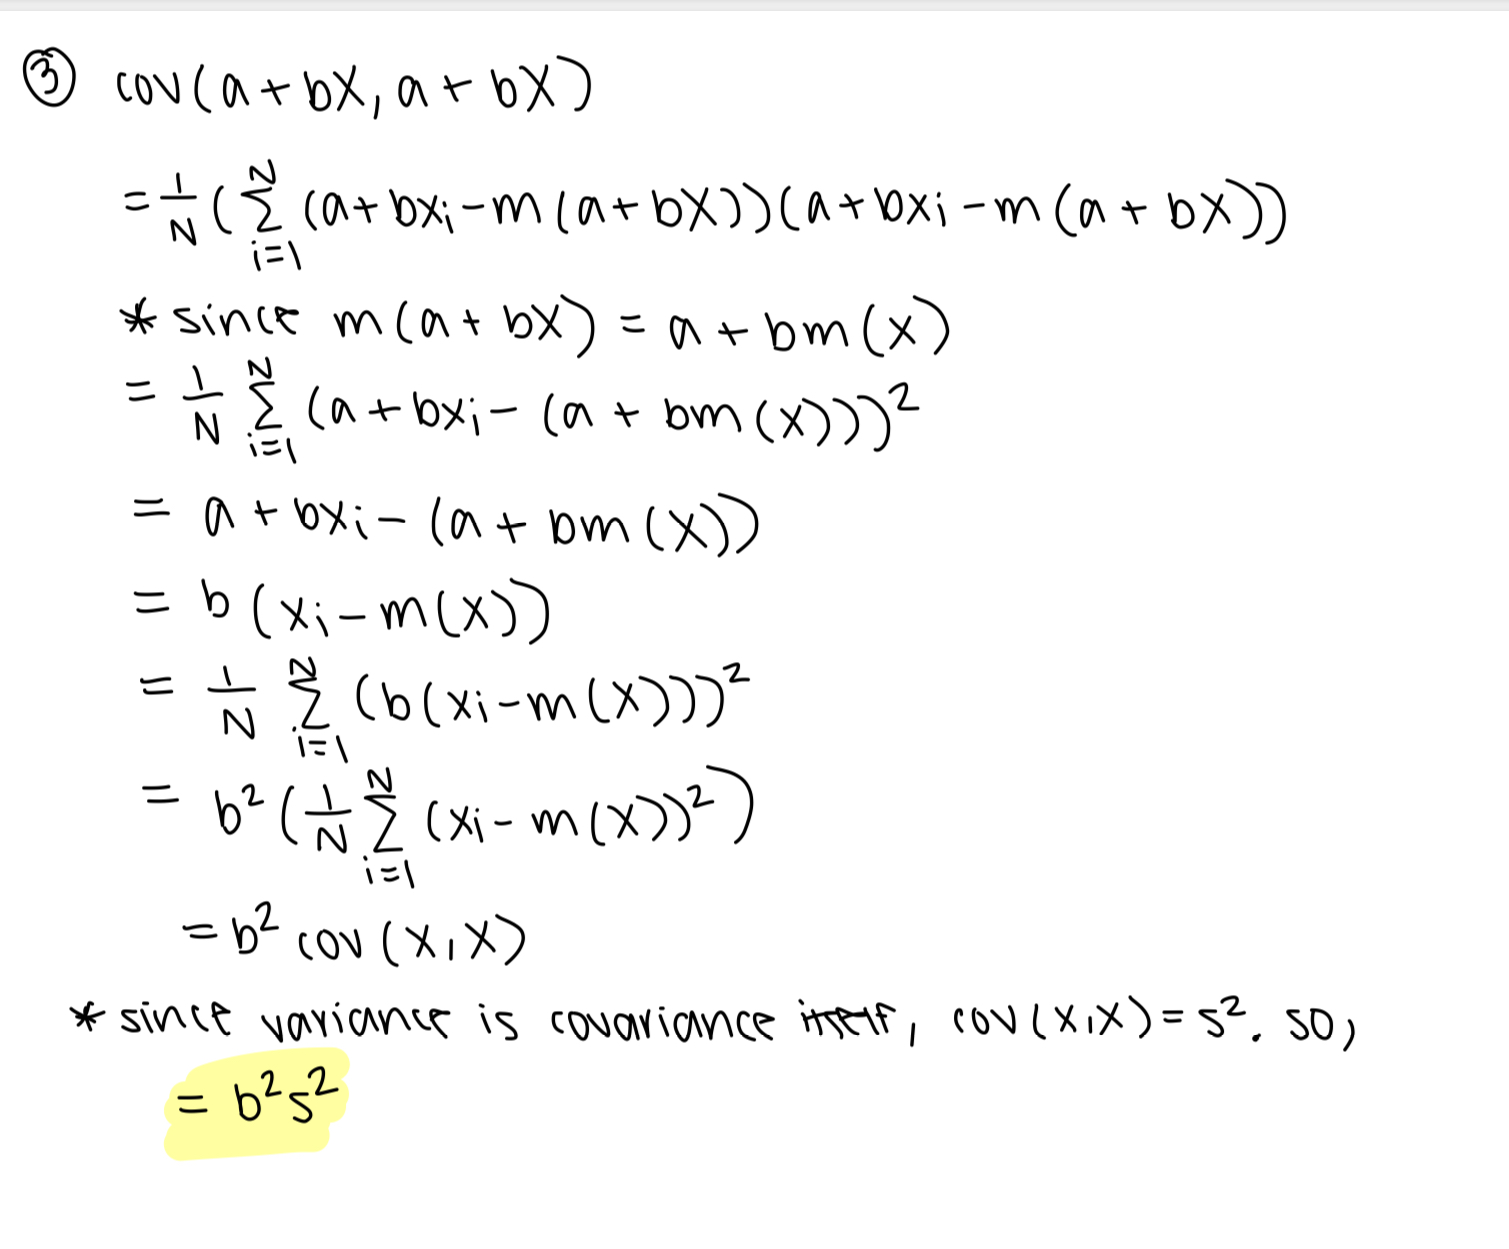 ③ cov(a+bX, a+bX)
= 1/N (∑_{i=1}^{N} (a+bxᵢ-m(a+bX))(a+bxᵢ-m(a+bX))
* since m(a+bX) = a+bm(x)
= 1/N ∑_{i=1}^{N} (a+bxᵢ-(a+bm(x)))²
= a+bxᵢ-(a+bm(x))
= b(xᵢ-m(x))
= 1/N ∑_{i=1}^{N} (b(xᵢ-m(x)))²
= b²(1/N ∑_{i=1}^{N} (xᵢ-m(x))²)
= b² cov(x,x)
* since variance is covariance itself, cov(x,x)=s². so,
= b²s²